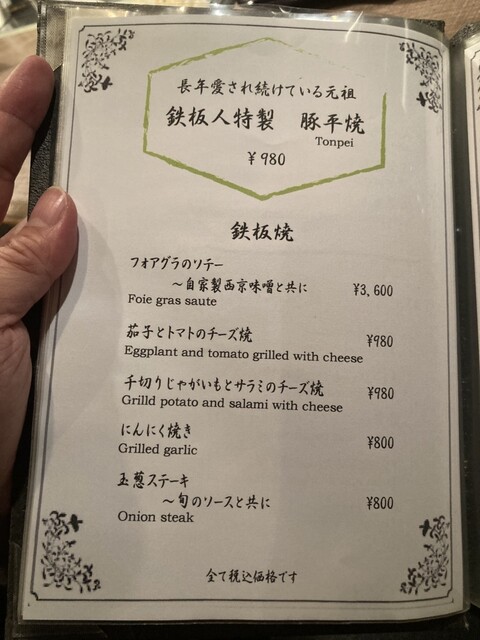 長年愛され続けている元祖
鉄板人特製　豚平焼
Tonpei
¥980
鉄板焼
フォアグラのソテー
～自家製西京味噌と共に ¥3,600
Foie gras saute
茄子とトマトのチーズ焼 ¥980
Eggplant and tomato grilled with cheese
千切りじゃがいもとサラミのチーズ焼 ¥980
Grilld potato and salami with cheese
にんにく焼き ¥800
Grilled garlic
玉葱ステーキ
～旬のソースと共に ¥800
Onion steak
全て税込価格です